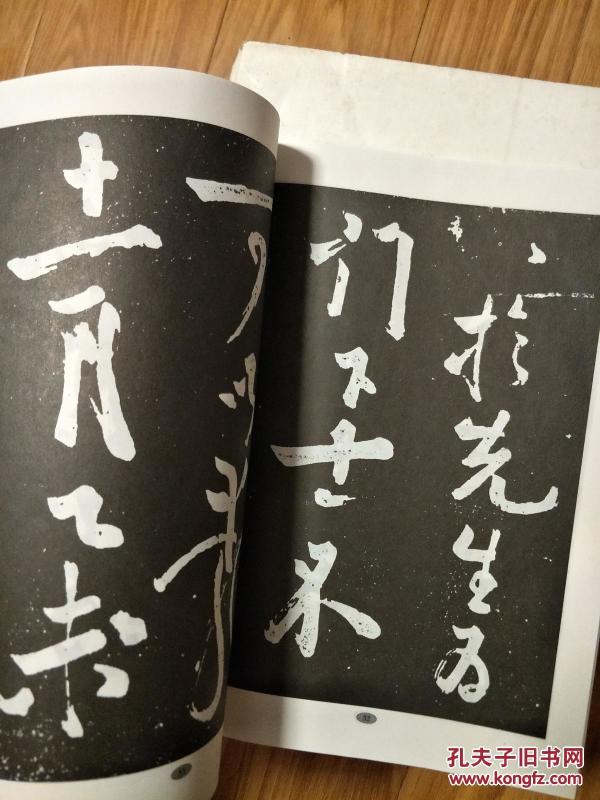 於先生為
門下士不
可以辭
十一月乙未
孔夫子旧书网
www.kongfz.com